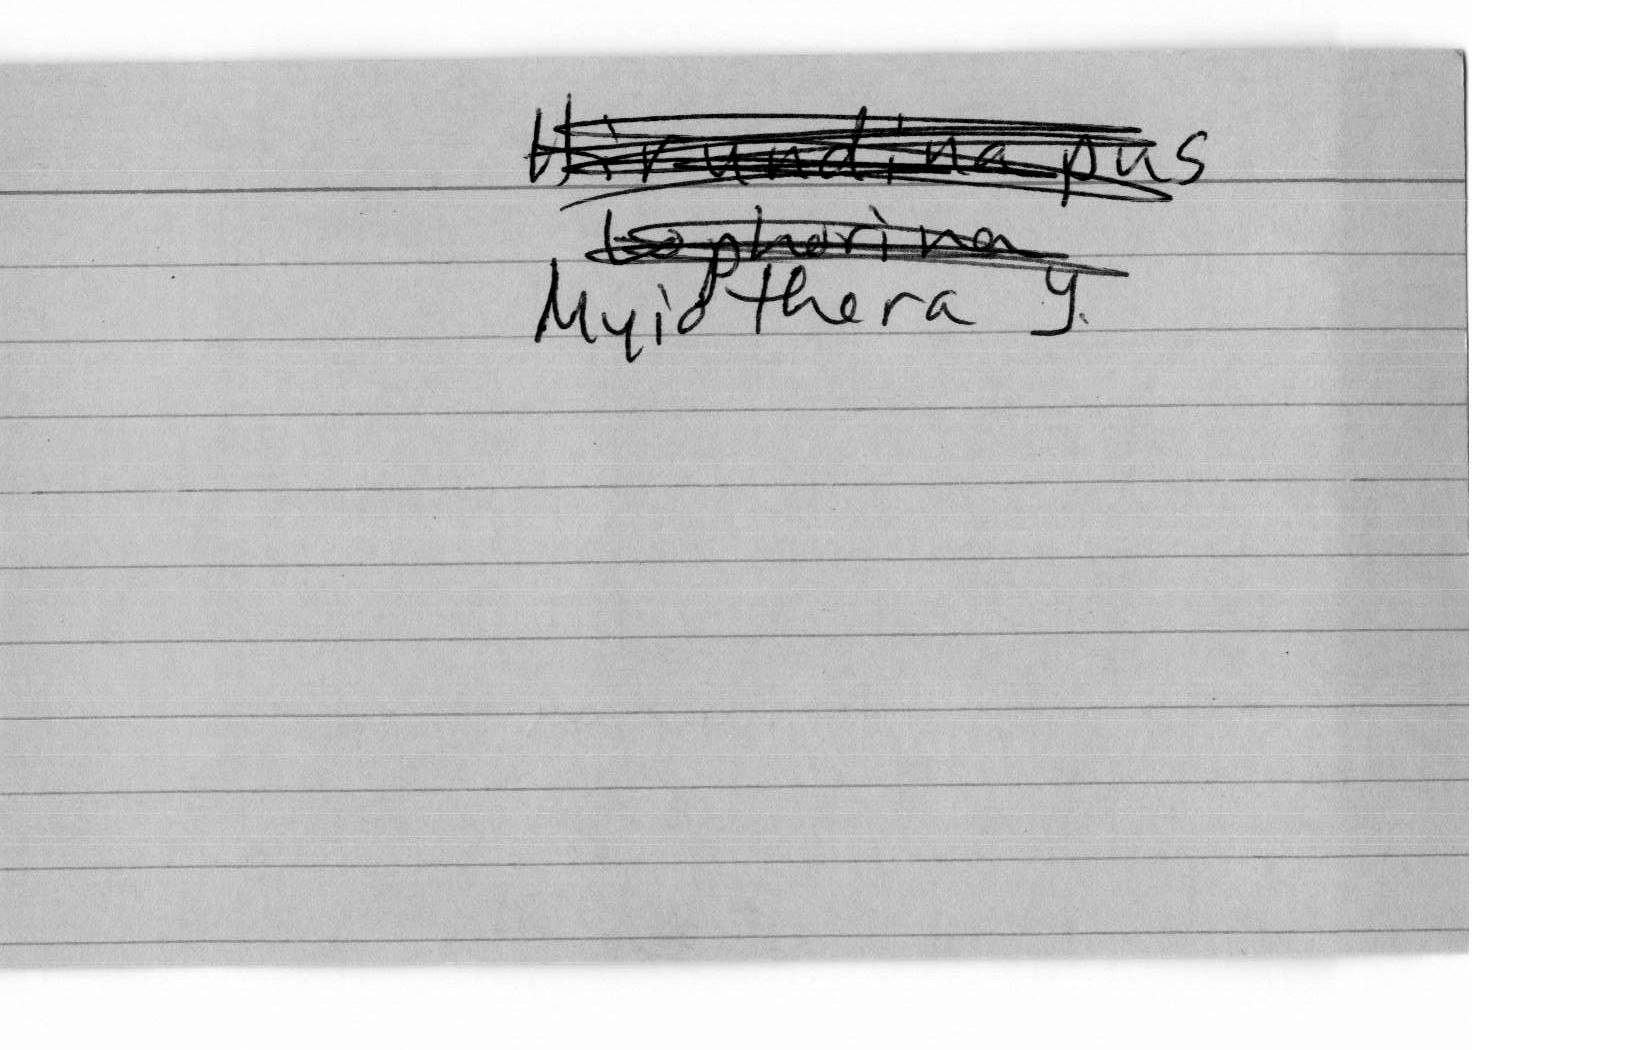 Hirundinapus
Lophorina
Myiothera y.